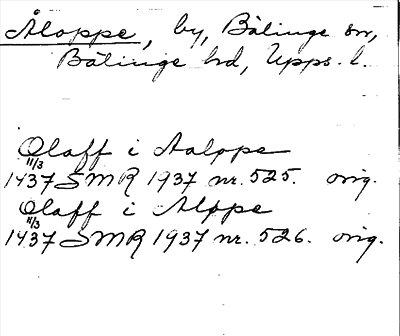 Åloppe, by, Bälinge sn,
Bälinge hd, Upps. l.
Olaff i Aaloppe
11/3
1437 SMR 1937 nr. 525. orig.
Olaff i Alppe
11/3
1437 SMR 1937 nr. 526. orig.